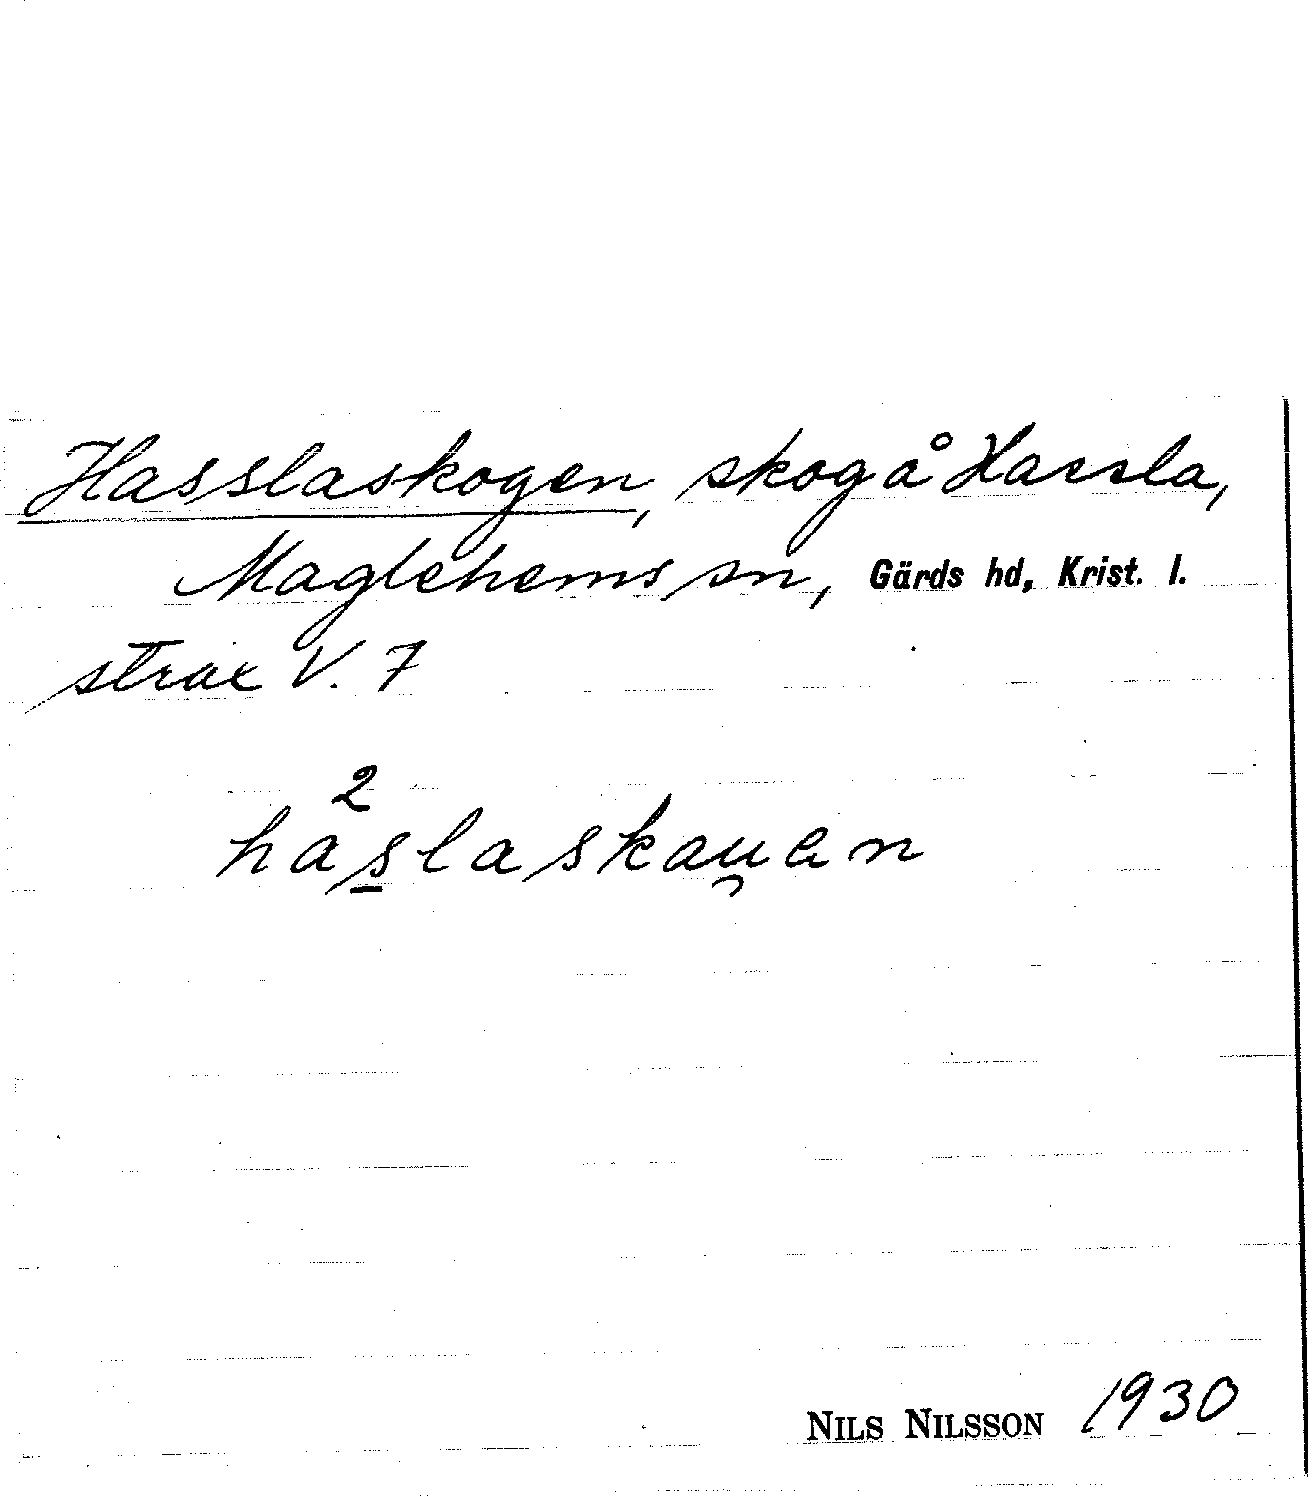 Hasslaskogen, skog å Hassla,
Maglehems sn, Gärds hd, Krist. l.
strax V. 7
2
haslaskau̯an
NILS NILSSON 1930